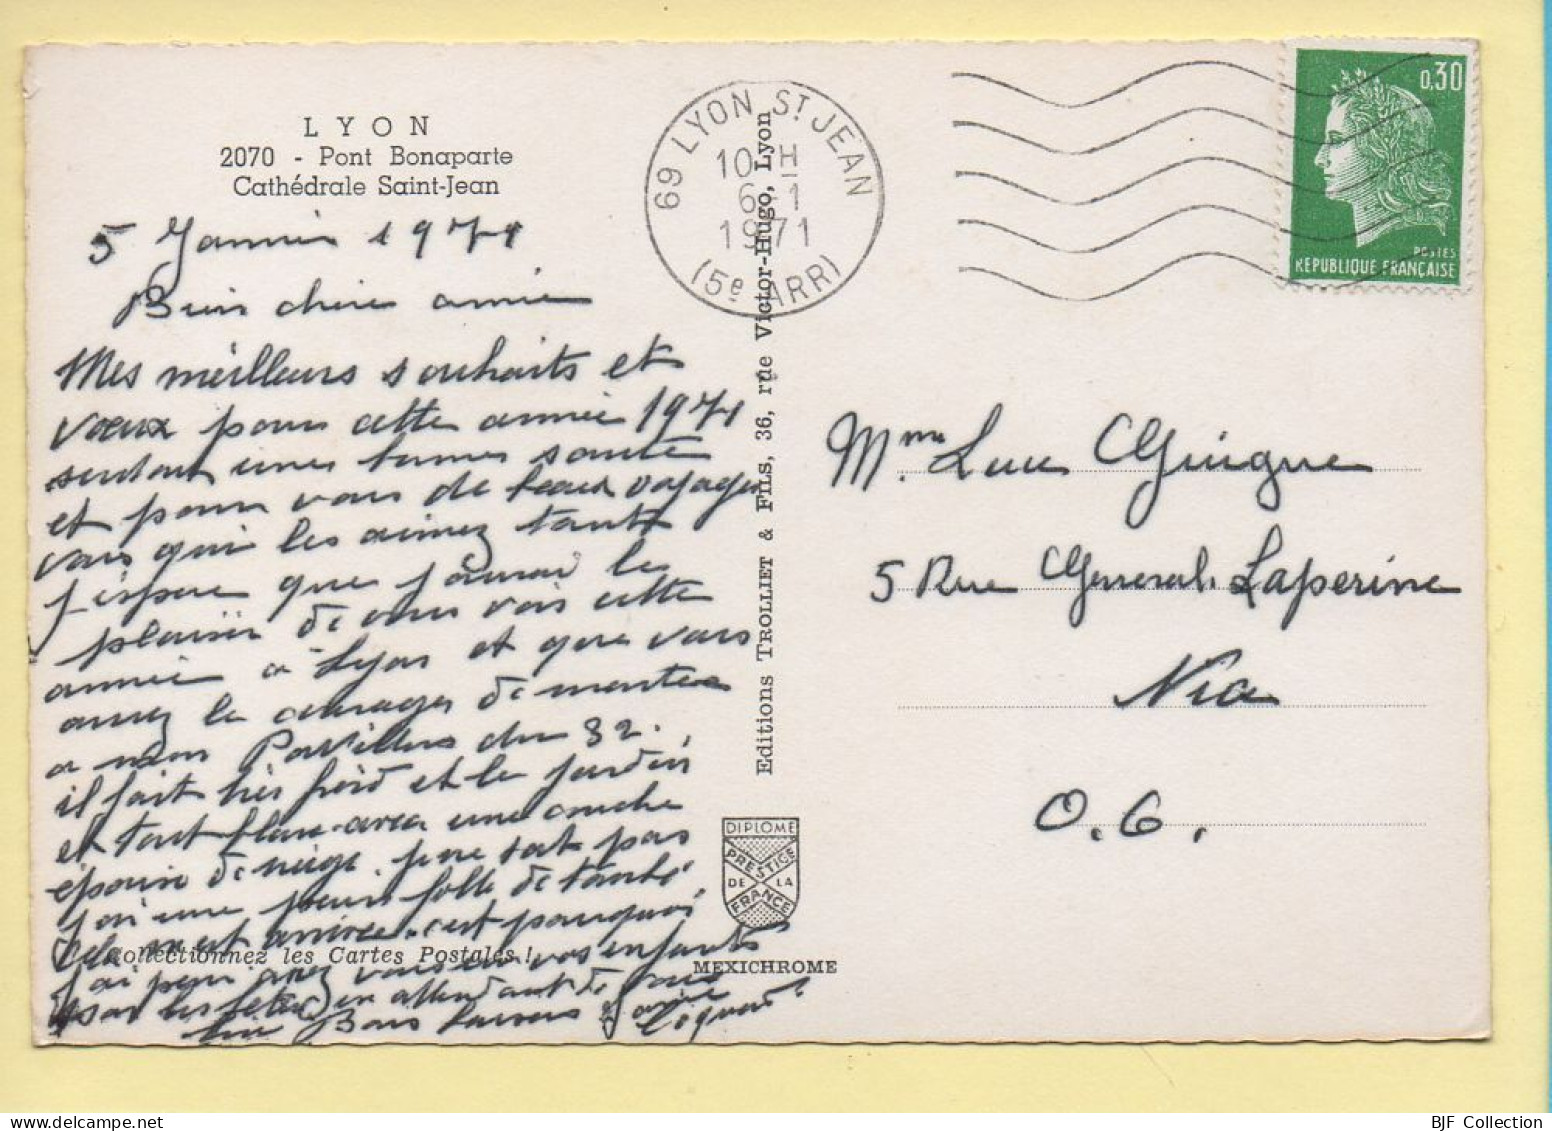 LYON
2070 - Pont Bonaparte
Cathédrale Saint-Jean
5 Janvier 1971
Bien chère amie
Mes meilleurs souhaits et
vœux pour cette année 1971
surtout une bonne santé
et pour vous de beaux voyages
vous qui les aimez tant
j'espère que j'aurai le
plaisir de vous voir cette
année à Lyon et que vous
aurez le courage de monter
a mon du 32.
il fait très froid et le jardin
et tout blanc avec une couche
épaisse de neige je ne sort pas
j'ai une peur folle de tomber
cela m'est arrivée c'est pourquoi
j'ai pour vos enfants
en attendant de vous
lire Bons baisers
69 LYON ST JEAN
10 H
6 - 1
1971
(5e ARR)
0,30
POSTES
REPUBLIQUE FRANÇAISE
Editions TROLLIET & FILS, 36, rue Victor-Hugo, Lyon
Mme Luce Guigue
5 Rue General Laperine
Nice
O.6.
DIPLOME
PRESTIGE
DE LA
FRANCE
Collectionnez les Cartes Postales !
MEXICHROME
BJF Collection